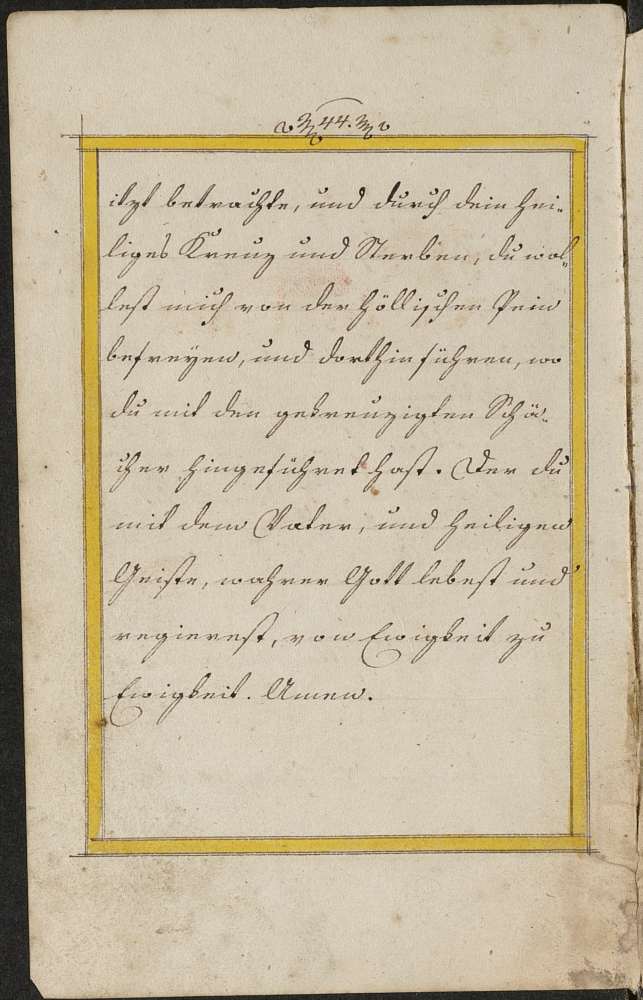 44.
itzt betrachte, und durch dein hei-
liges Kreuz und Sterben, du wol-
lest mich von der höllischen Pein
befreyen, und dorthin führen, wo
du mit den gekreuzigten Schä-
cher hingeführet hast. Der du
mit dem Vater, und heiligen
Geiste, wahrer Gott lebest und
regierest, von Ewigkeit zu
Ewigkeit. Amen.